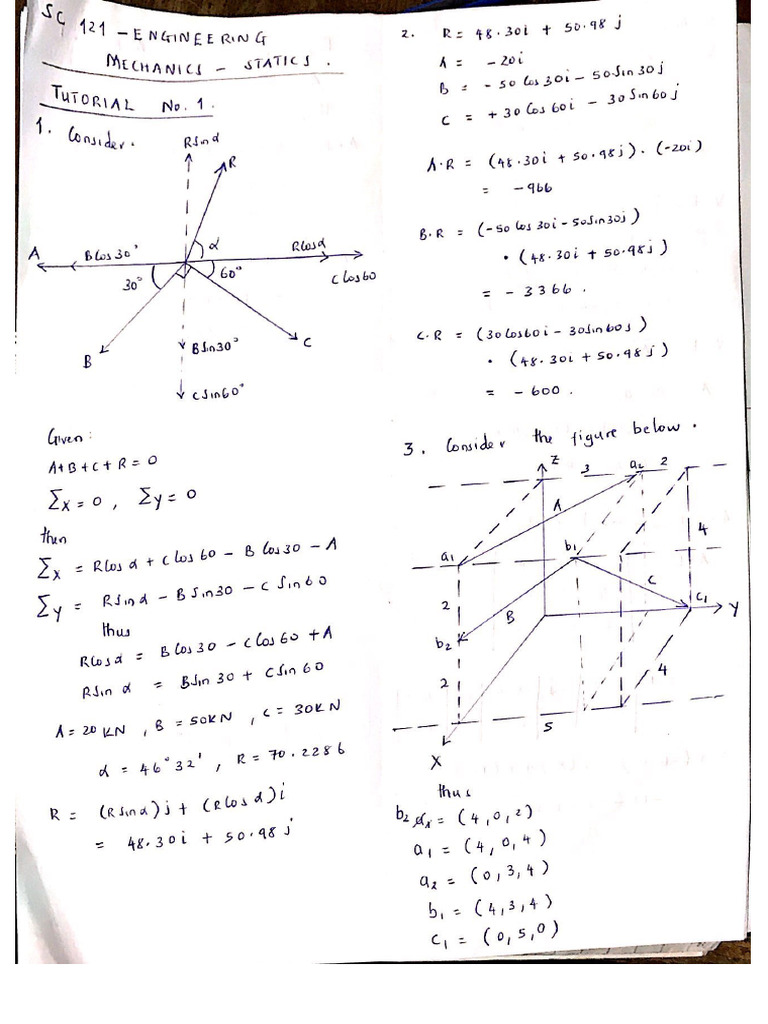 SC 121 - ENGINEERING
MECHANICS - STATICS.
TUTORIAL No. 1.
1. Consider.
Rsinα
R
A
Bcos30°
α
Rcosα
30°
60°
Ccos60
B
Bsin30°
C
Csin60°
Given:
A+B+C+R=0
Σx=0, Σy=0
then
Σx = Rcosα + Ccos60 - Bcos30 - A
Σy = Rsinα - Bsin30 - Csin60
thus
Rcosα = Bcos30 - Ccos60 + A
Rsinα = Bsin30 + Csin60
A=20KN, B=50KN, C=30KN
α = 46°32', R=70.2286
R = (Rsinα)j + (Rcosα)i
= 48.30i + 50.98j
2. R= 48.30i + 50.98j
A = -20i
B = -50Cos30i - 50Sin30j
C = +30Cos60i - 30Sin60j
A.R = (48.30i + 50.98j). (-20i)
= -966
B.R = (-50cos30i-50sin30j)
. (48.30i + 50.98j)
= -3366.
C.R = (30cos60i-30sin60j)
. (48.30i+50.98j)
= -600.
3. Consider the figure below.
Z
3
a2
2
A
a1
b1
4
2
C
c1
B
Y
b2
2
4
5
X
thus
b2 = (4,0,2)
a1 = (4,0,4)
a2 = (0,3,4)
b1 = (4,3,4)
c1 = (0,5,0)